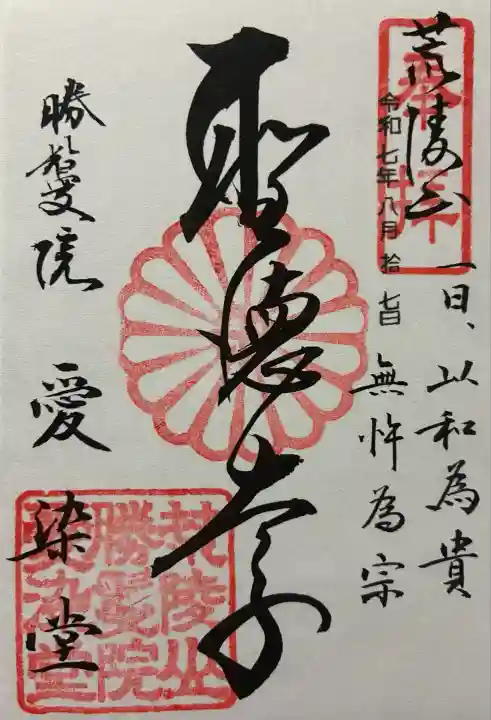 荒陵山
奉拝
令和七年八月拾七日
一日、以和為貴
無忤為宗
聖徳太子
勝鬘院 愛染堂
荒陵山
勝鬘院
愛染堂